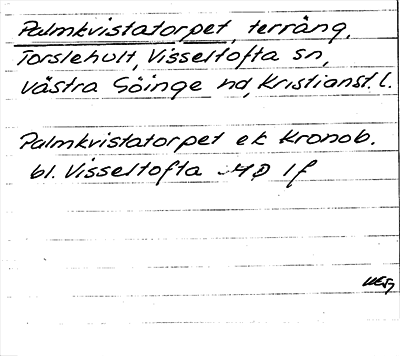 Palmkvistatorpet, terräng,
Torslehult, Visseltofta sn,
västra Göinge hd, Kristianst. l.
Palmkvistatorpet ek Kronob.
bl. Visseltofta HD 1f